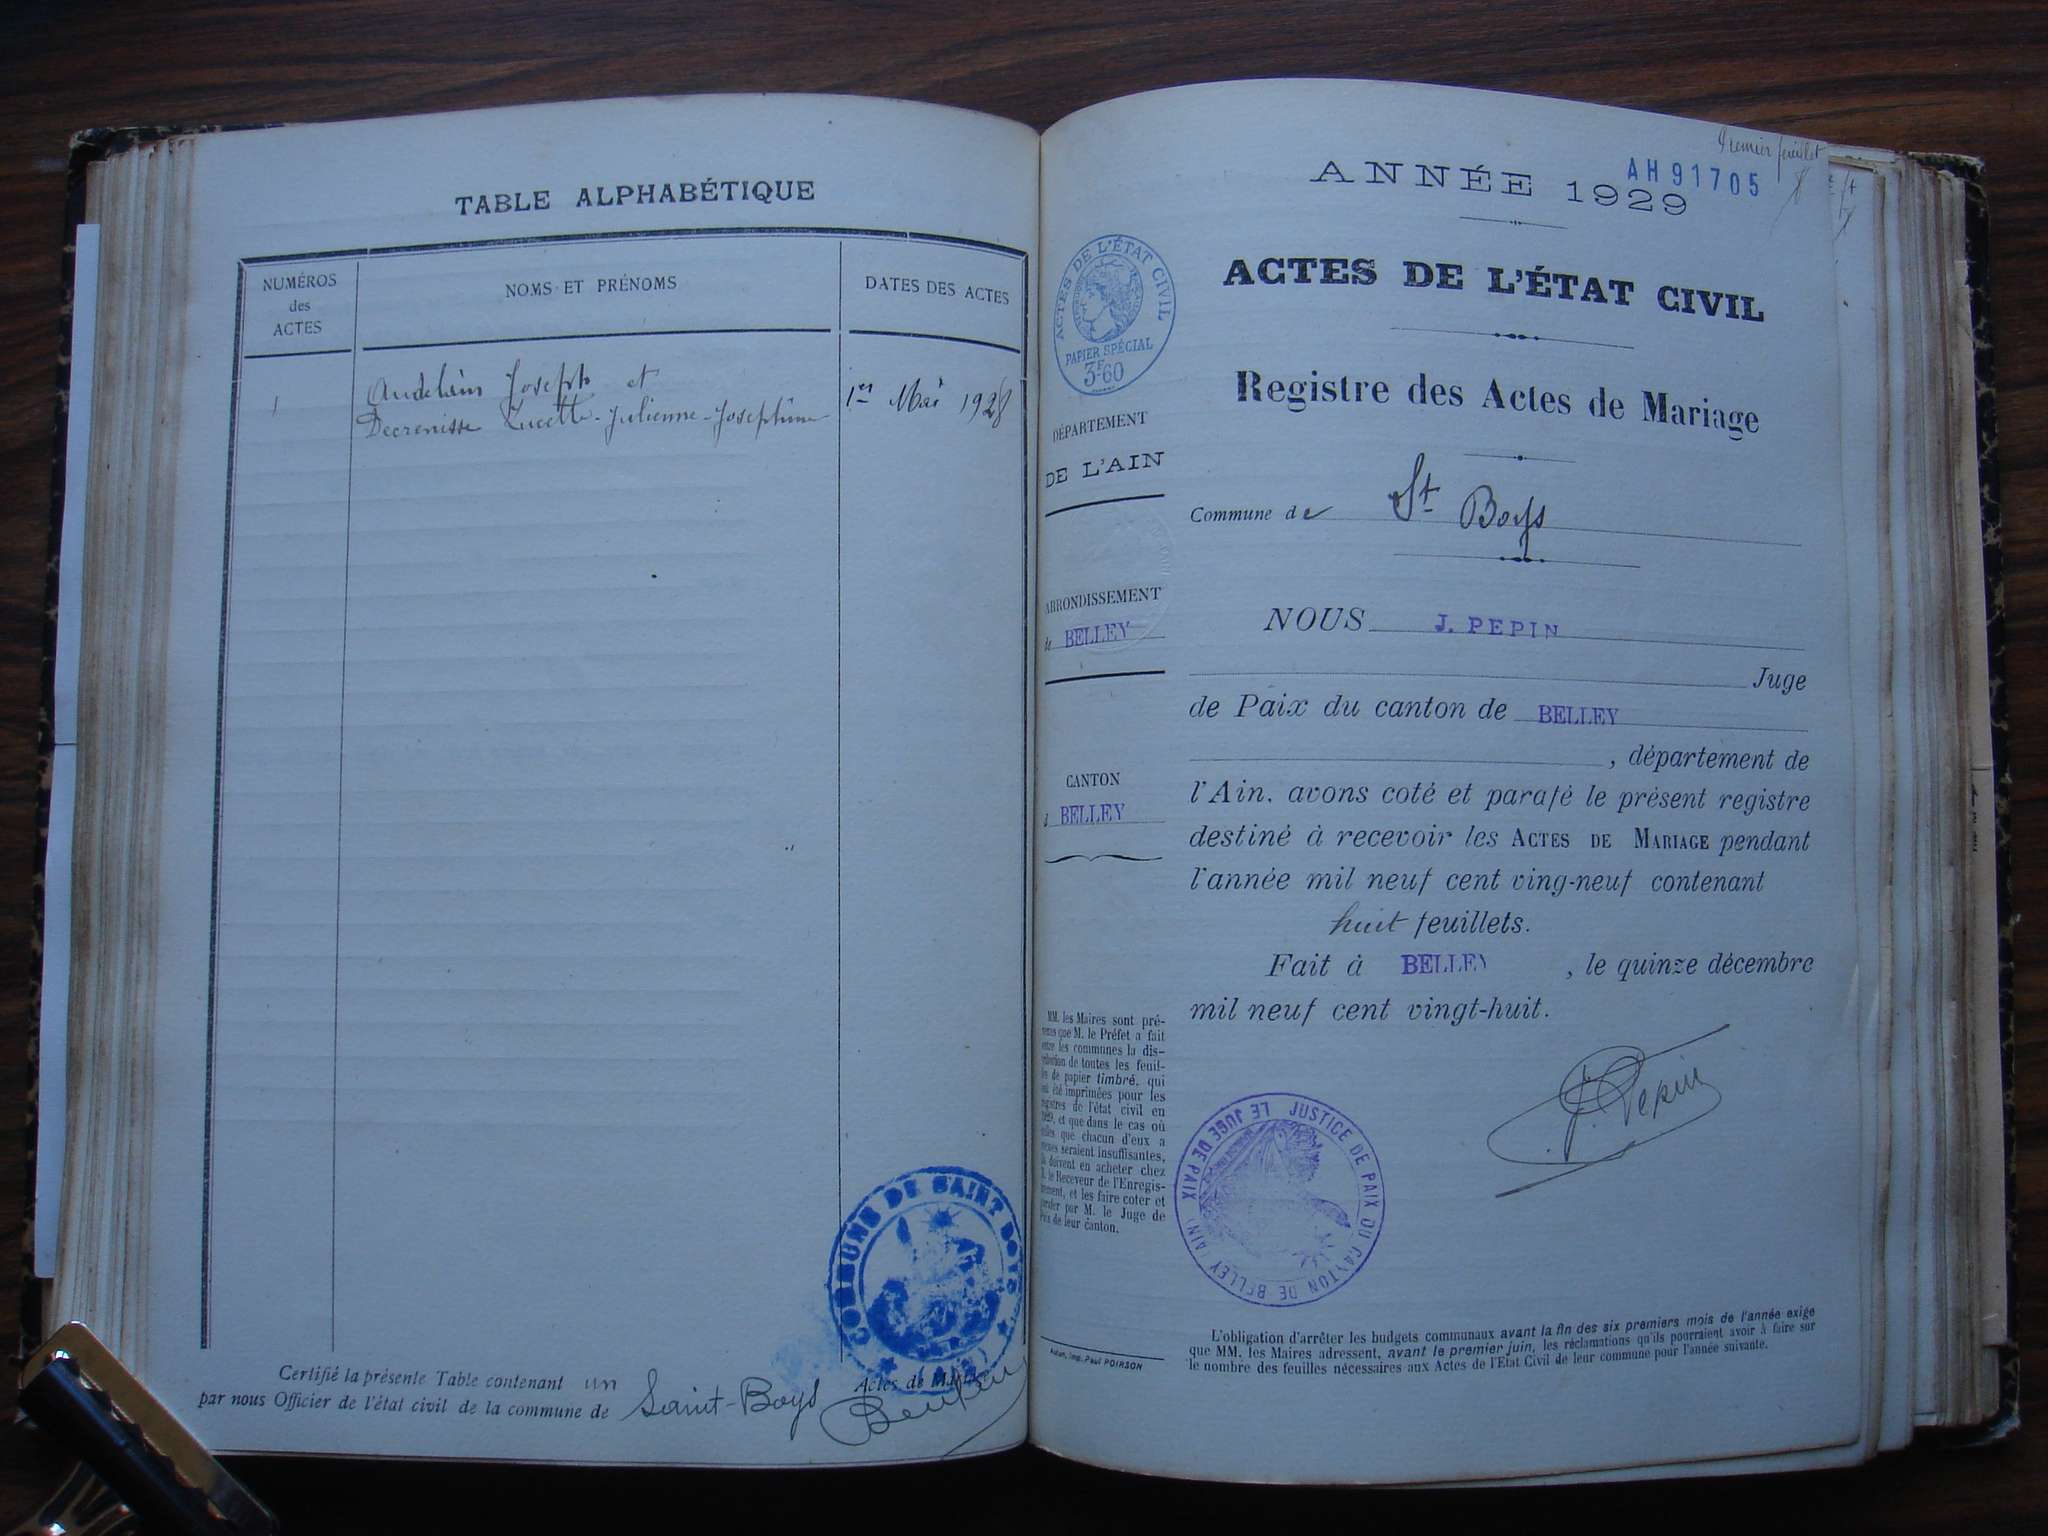 TABLE ALPHABÉTIQUE
NUMÉROS
des
ACTES
NOMS ET PRÉNOMS
DATES DES ACTES
1
Joseph et
Lucette-Julienne-Joséphine
1er Mai 1928
COMMUNE DE SAINT BOYS
(AIN)
Certifié la présente Table contenant un Actes de
par nous Officier de l'état civil de la commune de Saint-Boys
Premier feuillet
8
AH 91705
ANNÉE 1929
ACTES DE L'ÉTAT CIVIL
Registre des Actes de Mariage
ACTES DE L'ÉTAT CIVIL
PAPIER SPÉCIAL
3F60
DÉPARTEMENT
DE L'AIN
ARRONDISSEMENT
de BELLEY
CANTON
BELLEY
Commune de St Boys
NOUS J. PEPIN
Juge
de Paix du canton de BELLEY
, département de
l'Ain, avons coté et parafé le présent registre
destiné à recevoir les ACTES DE MARIAGE pendant
l'année mil neuf cent ving-neuf contenant
huit feuillets.
Fait à BELLEY , le quinze décembre
mil neuf cent vingt-huit.
J. Pepin
JUSTICE DE PAIX DU CANTON DE BELLEY (AIN)
LE JUGE DE PAIX
MM. les Maires sont pré-
venus que M. le Préfet a fait
entre les communes la dis-
tribution de toutes les feuil-
les de papier timbré, qui
ont été imprimées pour les
registres de l'état civil en
1929, et que dans le cas où
celles que chacun d'eux a
reçues seraient insuffisantes,
ils doivent en acheter chez
M. le Receveur de l'Enregis-
trement, et les faire coter et
parafer par M. le Juge de
Paix de leur canton.
Imp. Paul POIRSON
L'obligation d'arrêter les budgets communaux avant la fin des six premiers mois de l'année exige
que MM. les Maires adressent, avant le premier juin, les réclamations qu'ils pourraient avoir à faire sur
le nombre des feuilles nécessaires aux Actes de l'Etat Civil de leur commune pour l'année suivante.